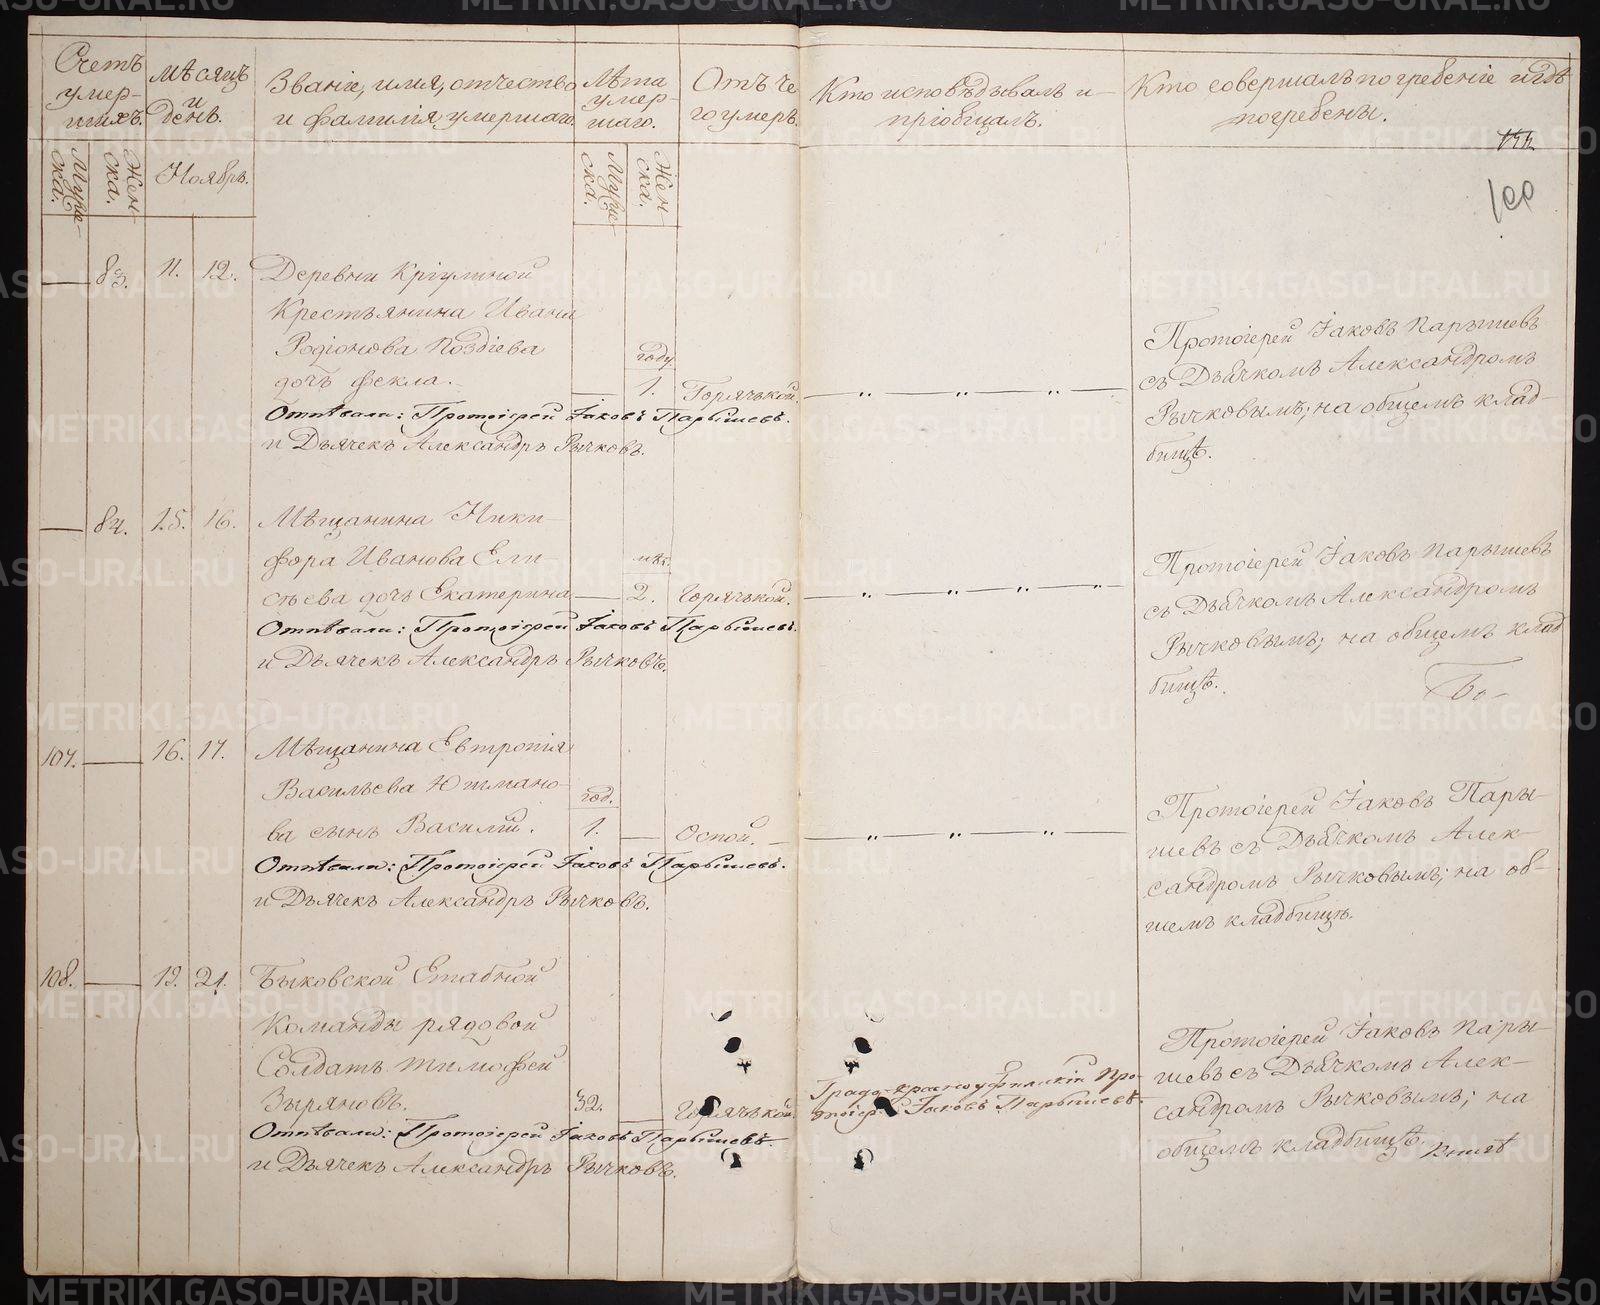 Счетъ умер- шихъ.
Мѣсяцъ и день.
Званіе, имя, отчество
и фамилія умершаго.
Лѣта умер- шаго.
Отъ че го умеръ.
Кто исповѣдывалъ и
пріобщалъ.
Кто совершалъ погребеніе и гдѣ
погребены.
100
Муже- ска.
Жен- ска.
Ноябрь.
Муже- ска.
Жен- ска.
83. 11. 12. Деревни Кріулиной
Крестьянина Ивана
Родіонова Поздіева
году
дочь Фекла. 1. Горячькой.
Отпѣвали: Протоіерей Іаковъ Парышевъ.
и Дьячекъ Александръ Рычковъ.
Протоіерей Іаковъ Парышевъ
съ Дьячкомъ Александромъ
Рычковымъ; на общемъ клад-
бищѣ.
84. 15. 16. Мѣщанина Ники-
фора Иванова Ели-
сѣева дочь Екатерина 2. Горячькой.
Отпѣвали: Протоіерей Іаковъ Парышевъ.
и Дьячекъ Александръ Рычковъ.
Протоіерей Іаковъ Парышевъ
съ Дьячкомъ Александромъ
Рычковымъ; на общемъ клад
бищѣ.
107. 16. 17. Мѣщанина Евтропія
Васильева Юшмано-
год.
ва сынъ Василій. 1. Оспой.
Отпѣвали: Протоіерей Іаковъ Парышевъ.
и Дьячекъ Александръ Рычковъ.
Протоіерей Іаковъ Пары-
шевъ съ Дьячкомъ Алек-
сандромъ Рычковымъ; на об-
щемъ кладбищѣ.
108. 19. 21. Быковской Етабной
Команды рядовой
Солдатъ Тимофей
Зыряновъ. 32. Горячькой.
Отпѣвали: Протоіерей Іаковъ Парышевъ.
и Дьячекъ Александръ Рычковъ.
Градо-Красноуфимскій Про-
тоіер. Іаковъ Парышевъ.
Протоіерей Іаковъ Пары-
шевъ съ Дьячкомъ Алек-
сандромъ Рычковымъ; на
общемъ кладбищѣ.
METRIKI.GASO-URAL.RU